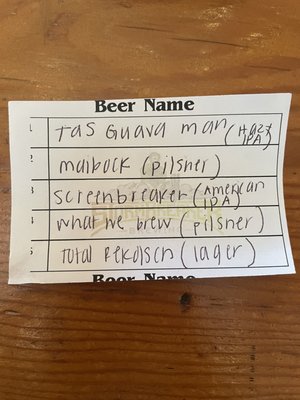 Beer Name
1 Tas Guava man (Hazy IPA)
2 maibock (pilsner)
3 screenbreaker (American IPA)
4 what we brew (pilsner)
5 Total Rekolsch (lager)
Beer Name